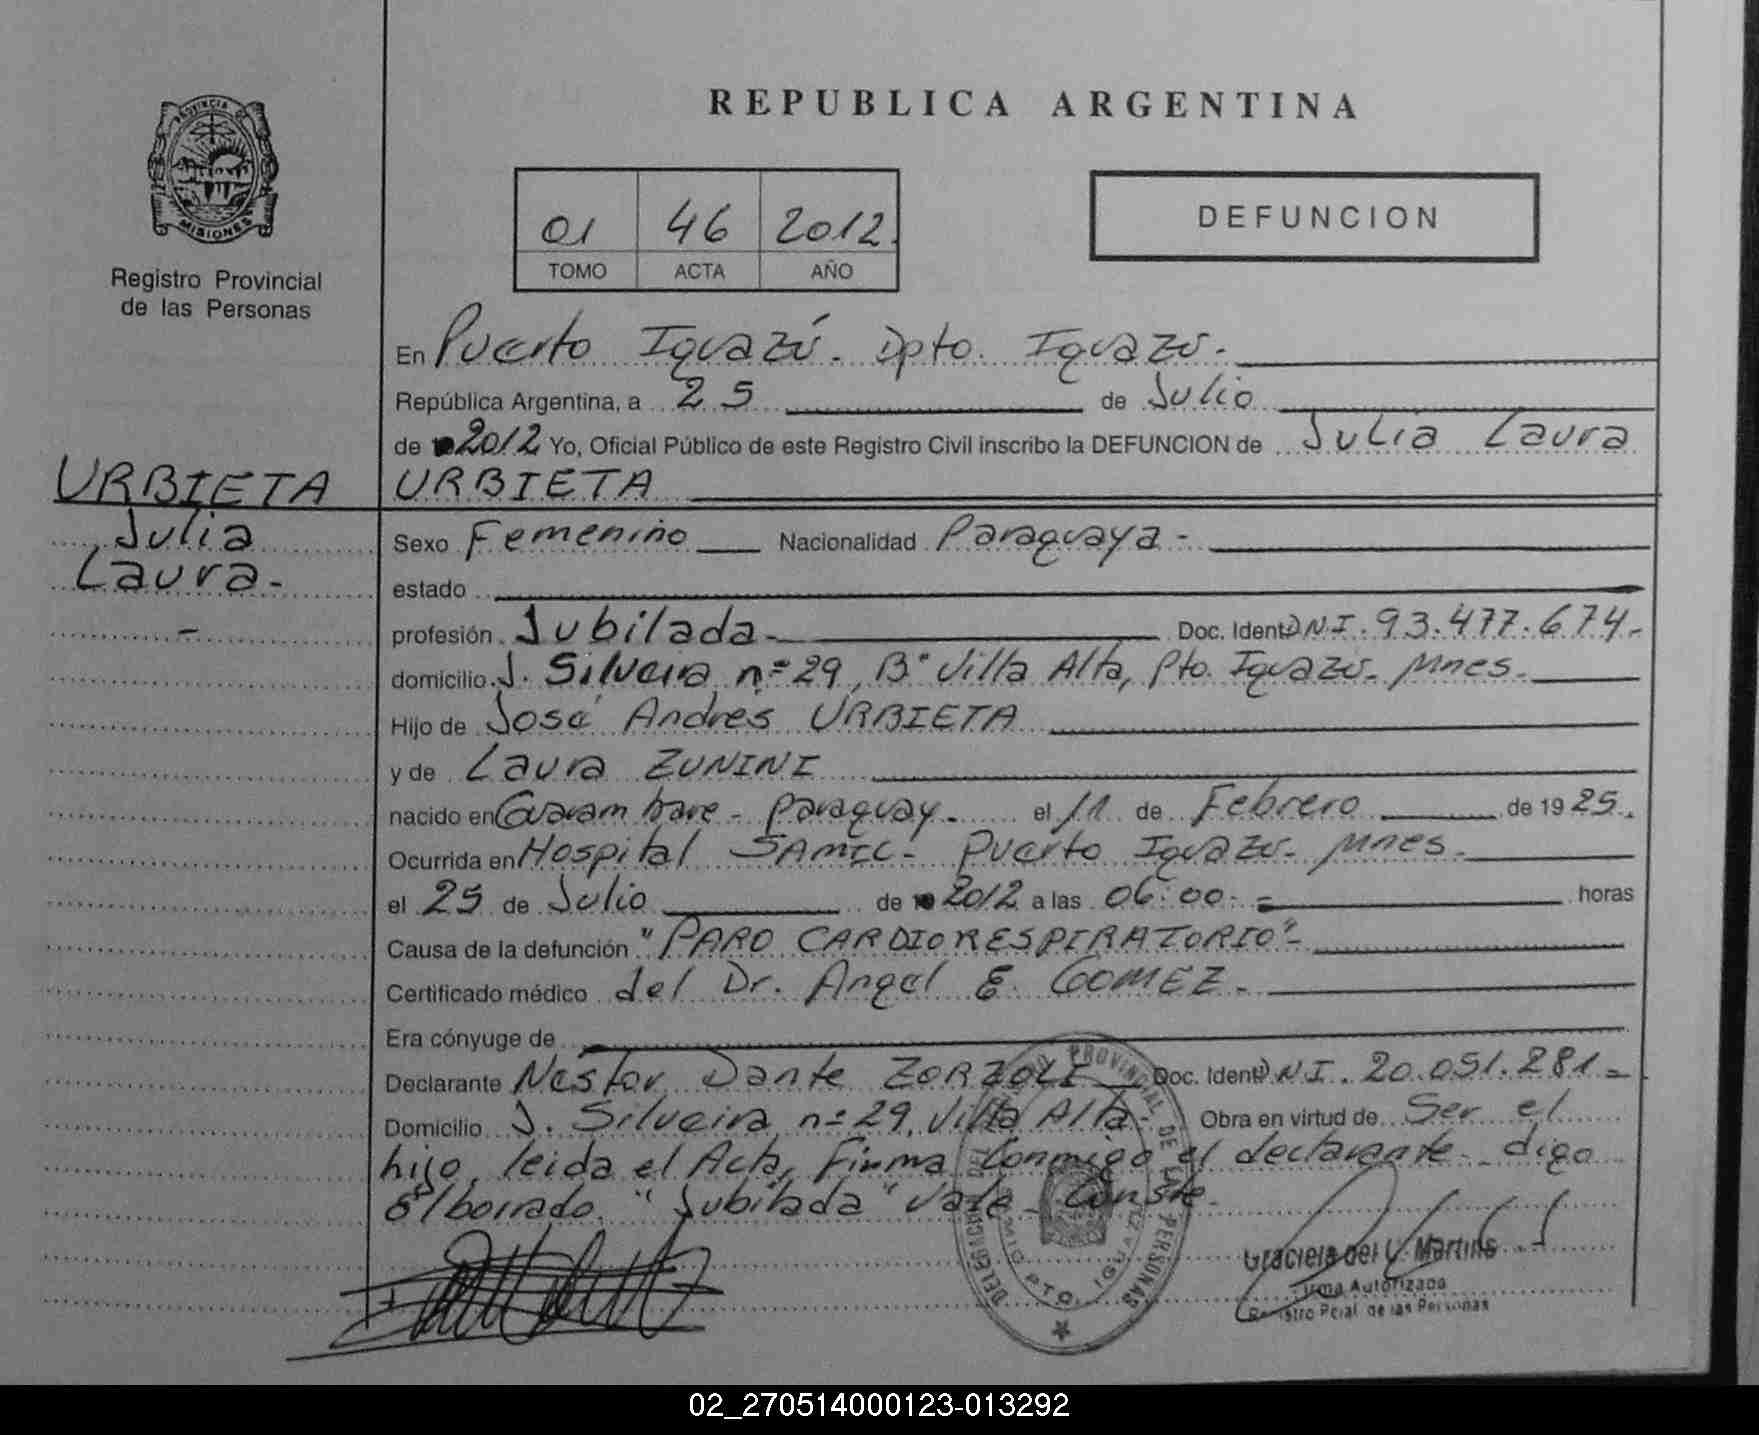 PROVINCIA DE
MISIONES
Registro Provincial
de las Personas
URBIETA
Julia
Laura-
-
REPUBLICA ARGENTINA
01 46 2012
TOMO ACTA AÑO
DEFUNCION
En Puerto Iguazú. Dpto. Iguazú.
República Argentina, a 25 de Julio
de 2012 Yo, Oficial Público de este Registro Civil inscribo la DEFUNCION de Julia Laura
URBIETA
Sexo Femenino Nacionalidad Paraguaya-
estado
profesión Jubilada- Doc. Ident. DNI. 93.477.674-
domicilio J. Silveira nº 29, Bº Villa Alta, Pto. Iguazú. Mnes.
Hijo de José Andres URBIETA
y de Laura ZUNINI
nacido en Guarambare - Paraguay. el 11 de Febrero de 1925.
Ocurrida en Hospital SAMIC- Puerto Iguazú- Mnes.
el 25 de Julio de 2012 a las 06:00- horas
Causa de la defunción "PARO CARDIORESPIRATORIO"-
Certificado médico del Dr. Angel E. GOMEZ.
Era cónyuge de
Declarante Nestor Dante ZORZOLI Doc. Ident. DNI. 20.051.281-
Domicilio J. Silveira nº 29, Villa Alta. Obra en virtud de Ser el
hijo, leida el Acta, Firma Conmigo el declarante. digo
S/borrado. "Jubilada" Vale. Conste.
DELEGACION DEL REGISTRO PROVINCIAL DE LAS PERSONAS
PTO. IGUAZU
Graciela del C. Martins
Firma Autorizada
Registro Pcial. de las Personas
02_270514000123-013292